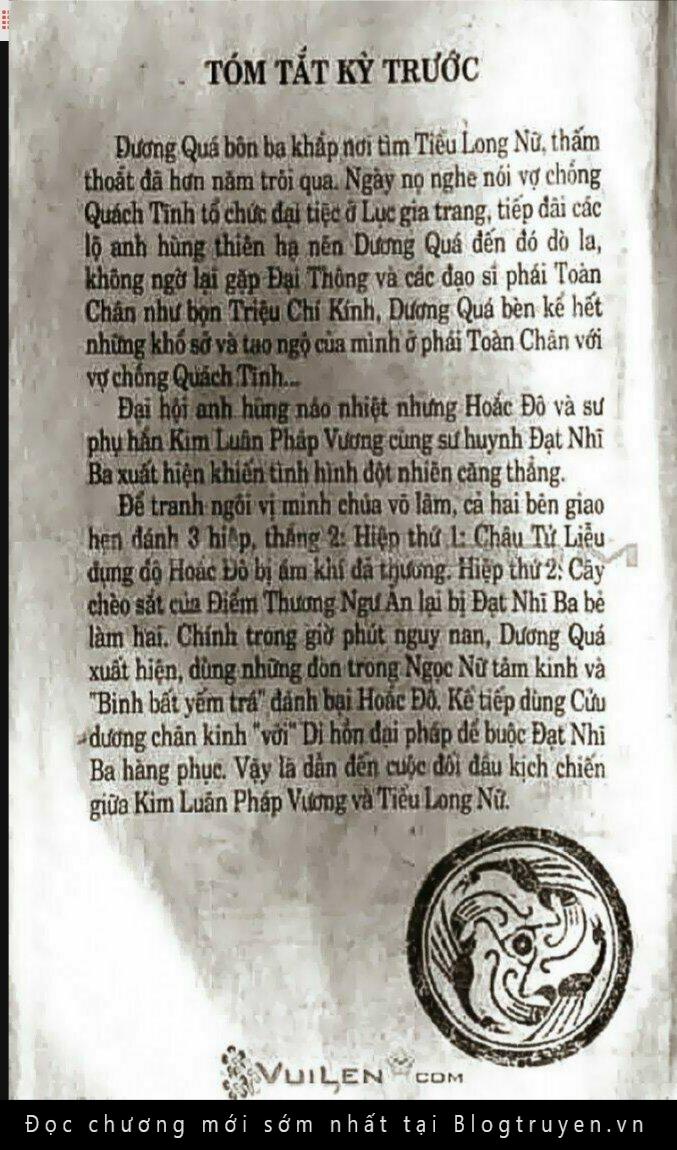 TÓM TẮT KỲ TRƯỚC
Dương Quá bôn ba khắp nơi tìm Tiểu Long Nữ, thấm
thoắt đã hơn năm trôi qua. Ngày nọ nghe nói vợ chồng
Quách Tĩnh tổ chức đại tiệc ở Lục gia trang, tiếp đãi các
lộ anh hùng thiên hạ nên Dương Quá đến đó dò la,
không ngờ lại gặp Đại Thông và các đạo sĩ phái Toàn
Chân như bọn Triệu Chí Kính, Dương Quá bèn kể hết
những khổ sở và tao ngộ của mình ở phái Toàn Chân với
vợ chồng Quách Tĩnh...
Đại hội anh hùng náo nhiệt nhưng Hoắc Đô và sư
phụ hắn Kim Luân Pháp Vương cùng sư huynh Đạt Nhĩ
Ba xuất hiện khiến tình hình đột nhiên căng thẳng.
Để tranh ngôi vị minh chủ võ lâm, cả hai bên giao
hẹn đánh 3 hiệp, thắng 2: Hiệp thứ 1: Châu Tử Liễu
đụng độ Hoắc Đô bị ám khí đả thương. Hiệp thứ 2: Cây
chèo sắt của Điểm Thương Ngư Ẩn lại bị Đạt Nhĩ Ba bẻ
làm hai. Chính trong giờ phút nguy nan, Dương Quá
xuất hiện, dùng những đòn trong Ngọc Nữ tâm kinh và
"Binh bất yếm trá" đánh bại Hoắc Đô. Kế tiếp dùng Cửu
dương chân kinh "với" Di hồn đại pháp để buộc Đạt Nhĩ
Ba hàng phục. Vậy là dẫn đến cuộc đối đầu kịch chiến
giữa Kim Luân Pháp Vương và Tiểu Long Nữ.
VUILEN COM
Đọc chương mới sớm nhất tại Blogtruyen.vn